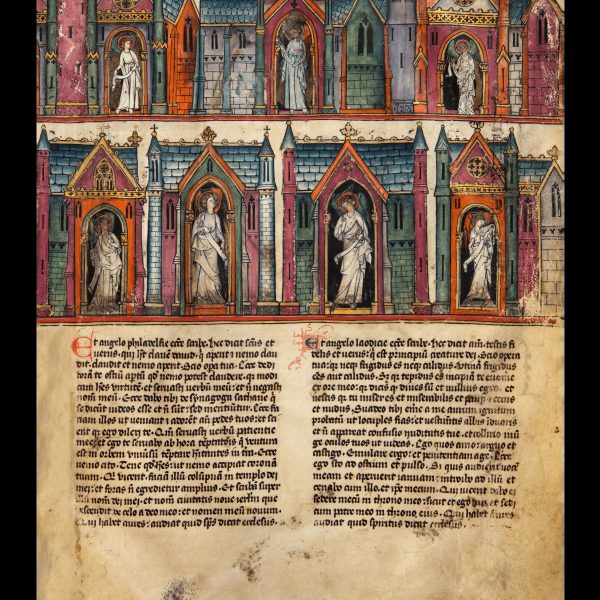 Et angelo philadelfie ecce scribe. hec dicit scūs et
uerus. qui hēt clauē dauid. q̄ aperit ⁊ nemo clau
dit. claudit et nemo aperit. Scio opera tua. Ecce dedi
corā te ostiū aptū qd nemo potest claudere. quia modi
cam hēs uirtutē. et seruasti uerbū meū: et nō negasti
nom̄ meū. Ecce dabo tibi de synagoga sathane q̄
se dicūt iudeos esse et nō sūt. sed mentiūtur. Ecce fa
ciam illos ut ueniant ⁊ adorēt an̄ pedes tuos: et sci
ent q̄ ego dilexi te. Qm̄ seruasti uerbū patientie
mee: et ego te seruabo ab hora tēptatiōis q̄ uentura
est in orbem uniūsū tēptare hītantes in t̄ra. Ecce
uenio cito. Tene qd hēs: ut nemo accipiat coronā
tuam. Qui vicerit. faciā illū colūpnā in templo dei
mei: et foras nō egredietur amplius. Et scribā super
illū nom̄ dei mei. et nom̄ ciuitatis noue
descendit de celo a deo meo: et nomen meū nouum.
Qui habet aures: audiat quid sp̄s dicat ecclesiis.
Et angelo laodicie ecce scribe. hec dicit am̄. testis fi
delis et uerus: q̄ est principiū creature dei. Scio opera
tua: quia neq; frigidus es neq; calidus. Utinā frigidus
ēes aut calidus. Sed quia tepidus es incipiā te euomere
ex ore meo: quia dicis q̄ diues sū et nullius egeo. et
nescis quia tu miser es et miserabilis et paup̄ et cecus
et nudus. Suadeo tibi emere a me aurum ignitum
probatū ut locuples fias: et uestitis albis iduaris
et nō apareat confusio nuditatis tue. et collirio inū
ge oculos tuos ut uideas. Ego quos amo: arguo et
castigo. Emulare ergo: et penitentiam age. Ecce
ego sto ad ostium et pulso. Si quis audierit uocē
meam et aperuerit ianuam: introibo ad illū et
cenabo cum illo et ipse mecum. Qui uicerit dabo ei
sedere mecū in throno meo: sicut et ego uici et sedi
cum patre meo in throno eius. Qui habet aures
audiat quid spiritus dicat ecclesiis.